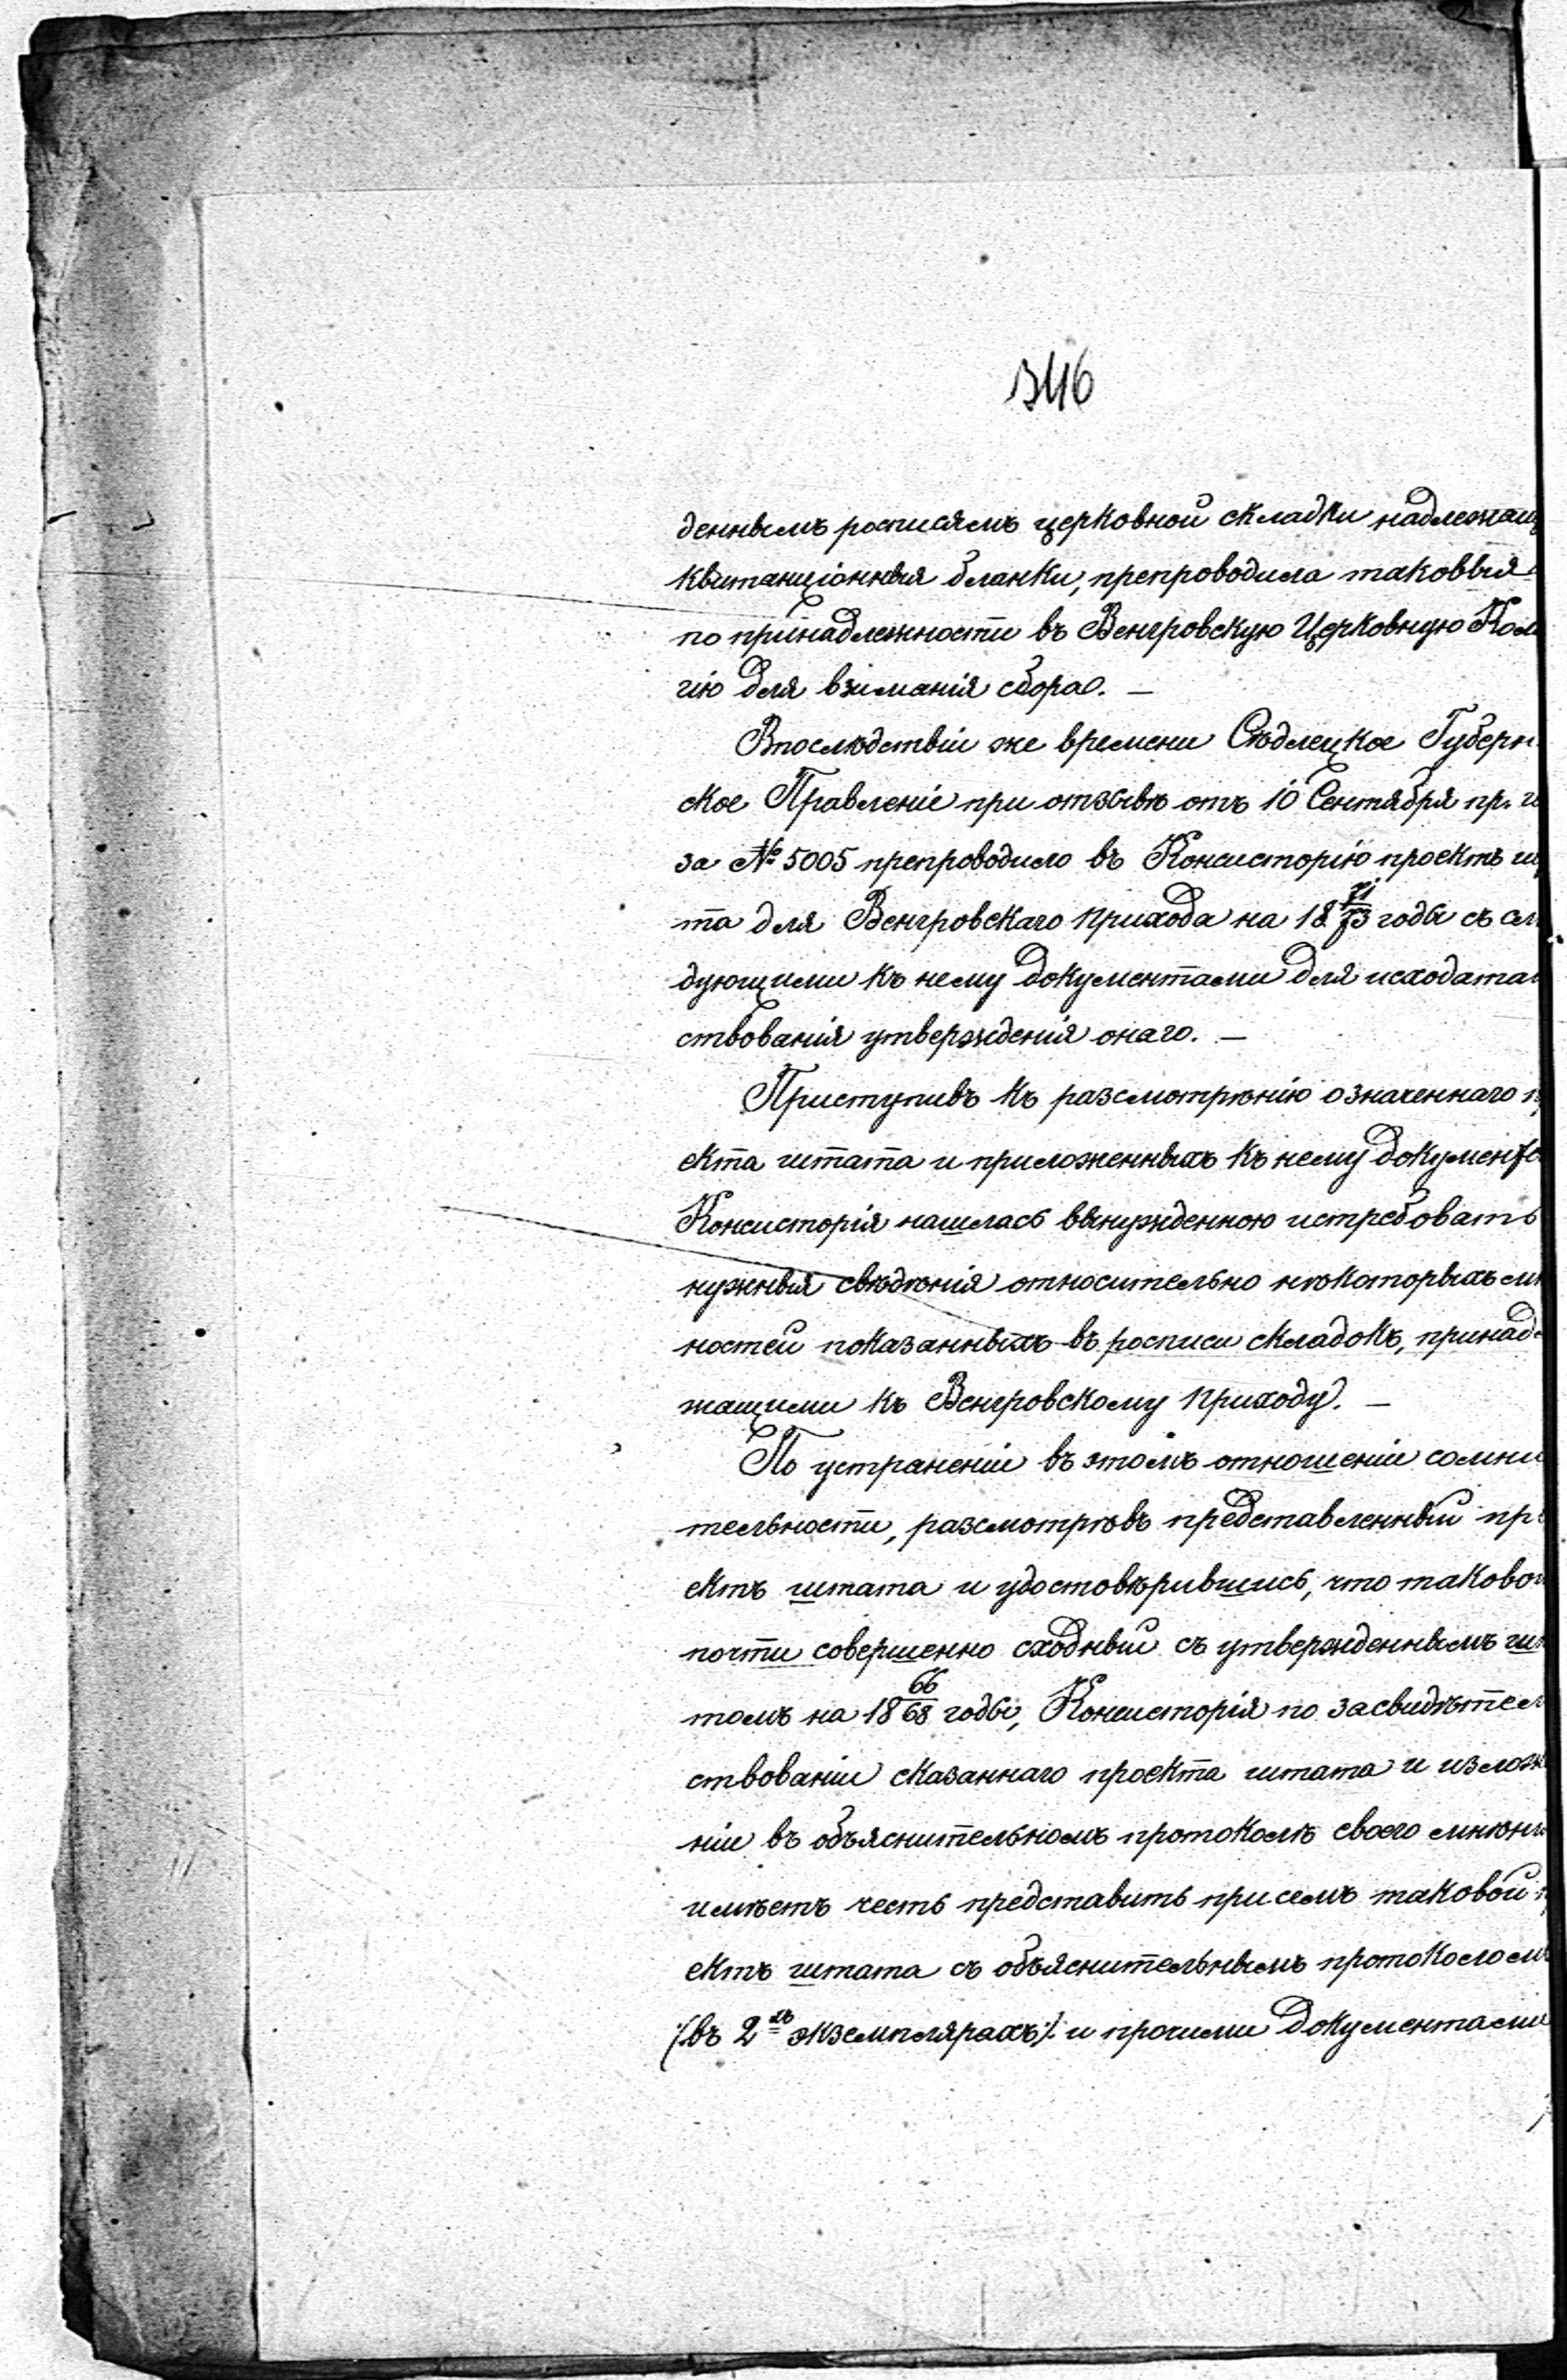 346
деннымъ росписямъ церковной складки надлежащ
квитанціонныя бланки, препроводила таковыя
по принадлежности въ Венгровскую Церковную Кол
гію для взиманія сбора. —
Впослѣдствіи же времени Сѣдлецкое Губерн
ское Правленіе при отзывѣ отъ 10 Сентября пр. го
за № 5005 препроводило въ Консисторію проектъ ш
та для Венгровскаго прихода на 18 71/73 годы съ слѣ
дующими къ нему документами для исходатай
ствованія утвержденія онаго. —
Приступивъ къ разсмотрѣнію означеннаго п
екта штата и приложенныхъ къ нему документо
Консисторія нашлась вынужденною истребовать
нужныя свѣдѣнія относительно нѣкоторыхъ мѣ
ностей показанныхъ въ росписи складокъ, принадл
жащими къ Венгровскому приходу. —
По устраненіи въ этомъ отношеніи сомни
тельности, разсмотрѣвъ представленный про
ектъ штата и удостовѣрившись, что таковой
почти совершенно сходный съ утвержденнымъ шт
томъ на 18 66/68 годы, Консисторія по засвидѣтел
ствованіи сказаннаго проекта штата и излож
ніи въ объяснительномъ протоколѣ своего мнѣні
имѣетъ честь представить при семъ таковой п
ектъ штата съ объяснительнымъ протоколомъ
/:въ 2хъ экземплярахъ:/ и прочими документами